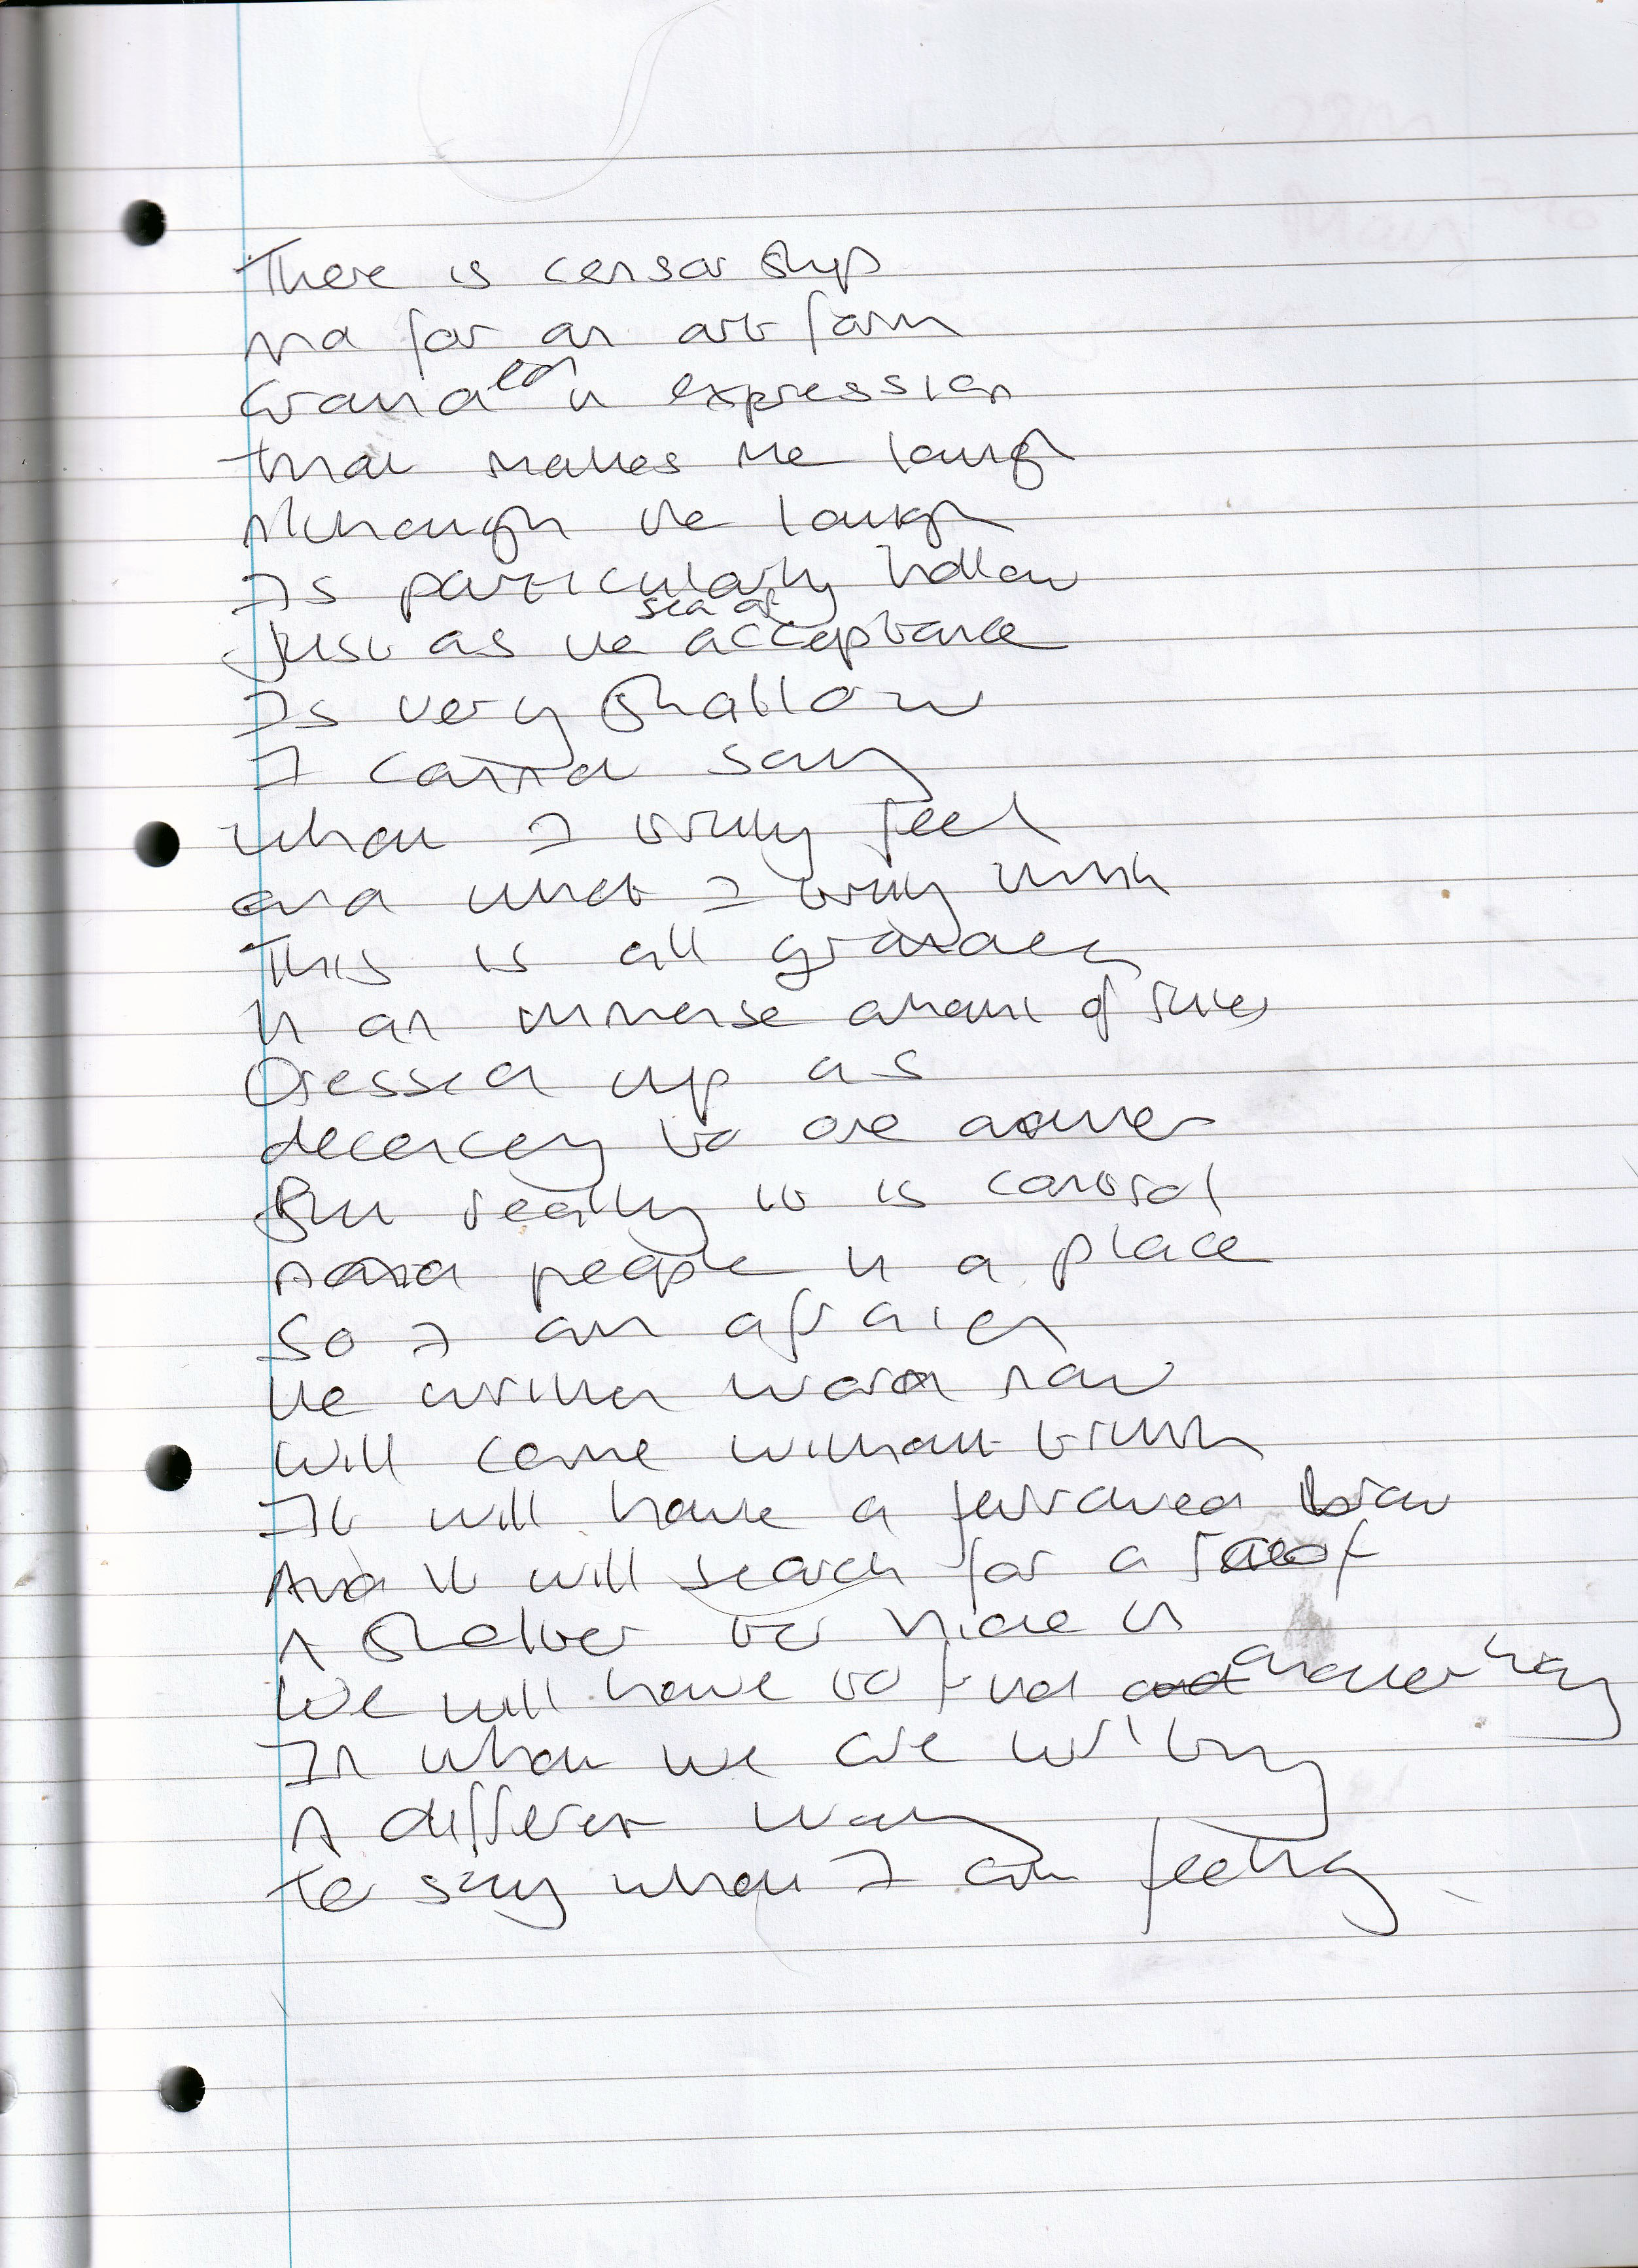 There is censorship
And for an art form
Grounded in expression
that makes me laugh
Although the laugh
Is particularly hollow
Just as the sea of acceptance
Is very shallow
I cannot say
what I truly feel
and what I truly think
This is all grounded
In an immense amount of rules
Dressed up as
decency to one another
But really it is control
Around people in a place
So I am afraid
the written word now
Will come without truth
It will have a furrowed brow
And it will search for a roof
A shelter to hide in
We will have to find another way
In what we are writing
A different way
to say what I am feeling